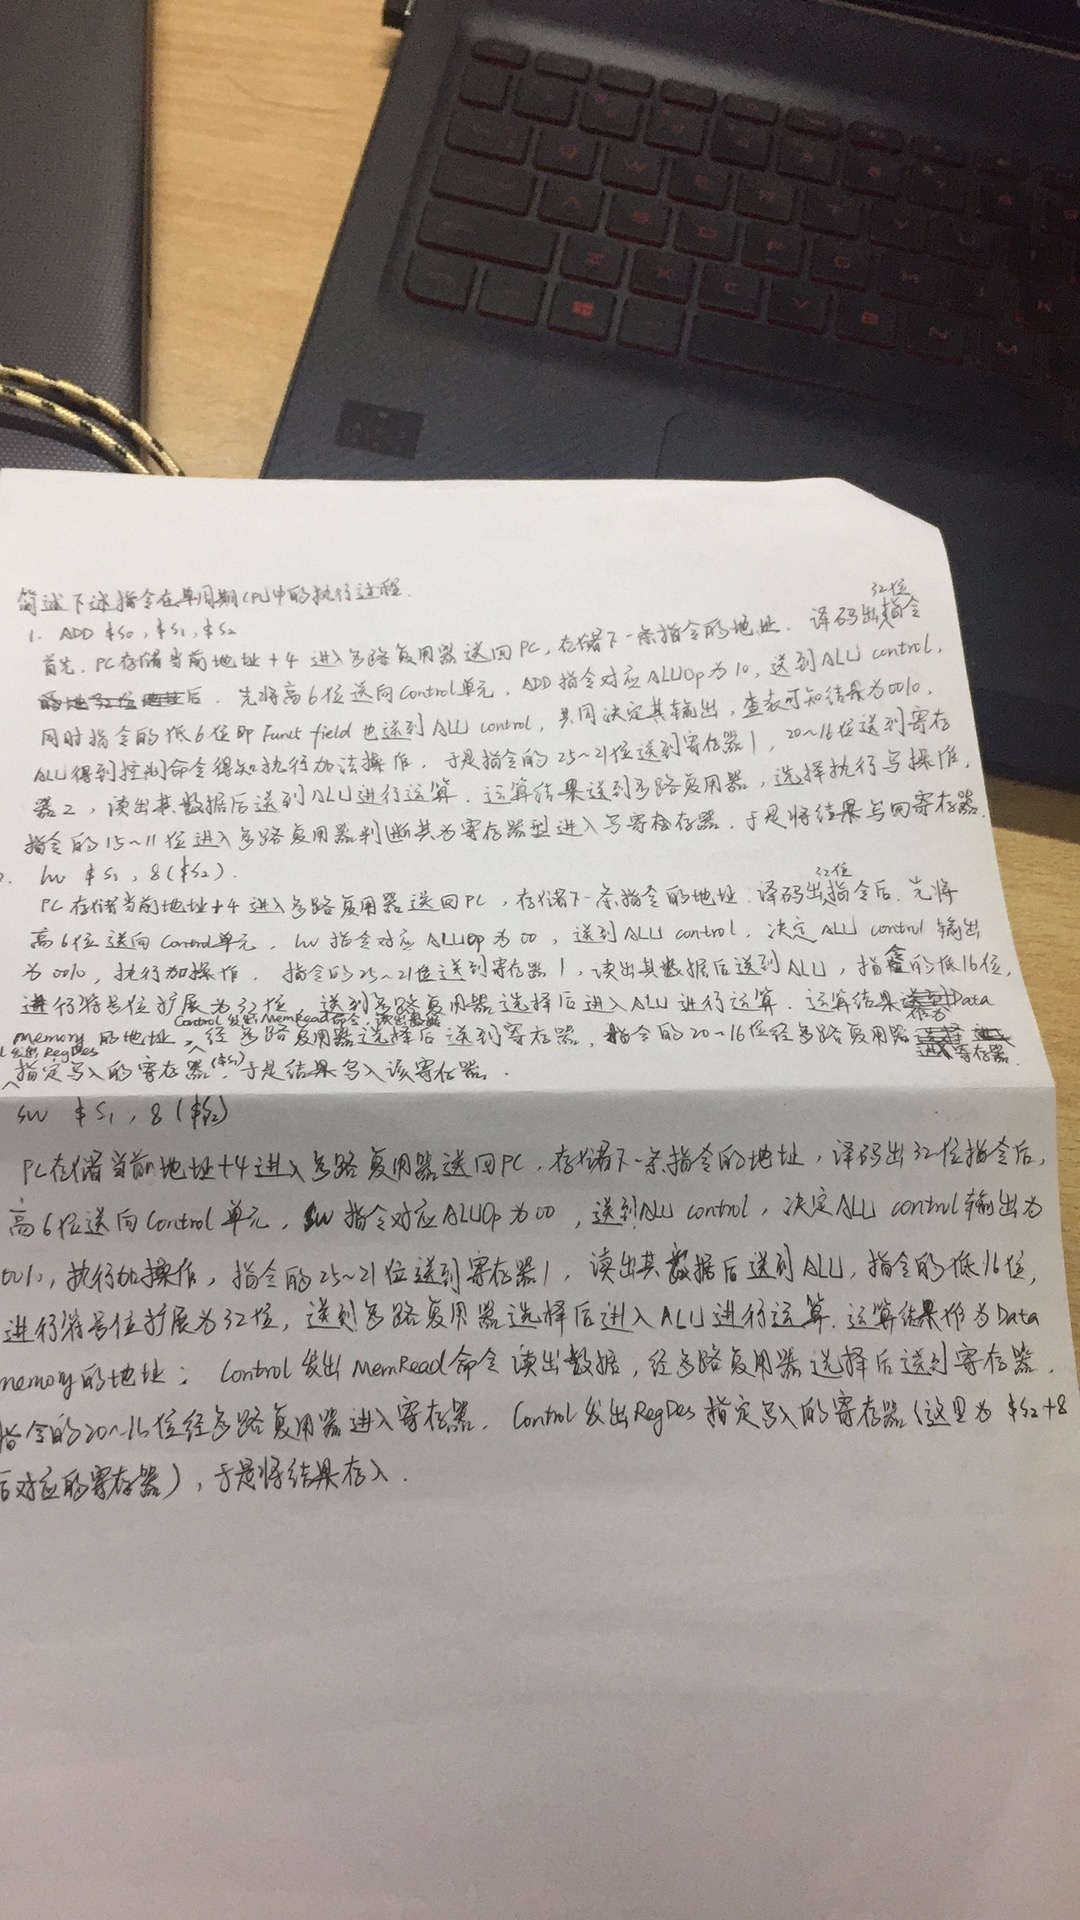 简述下述指令在单周期CPU中的执行过程.
1. ADD $s0, $s1, $s2
首先, PC存储当前地址+4 进入多路复用器送回PC, 存储下一条指令的地址. 译码出32位指令
后. 先将高6位送向Control单元, ADD指令对应ALUOp为10, 送到ALU control,
同时指令的低6位即Funct field也送到ALU control, 共同决定其输出, 查表可知结果为0010,
ALU得到控制命令得知执行加法操作, 于是指令的25~21位送到寄存器1, 20~16位送到寄存
器2, 读出其数据后送到ALU进行运算. 运算结果送到多路复用器, 选择执行写操作,
指令的15~11位进入多路复用器判断其为寄存器型进入写寄存器. 于是将结果写回寄存器.
lw $s1, 8($s2).
PC存储当前地址+4 进入多路复用器送回PC, 存储下一条指令的地址. 译码出32位指令后. 先将
高6位送向Control单元, lw指令对应ALUOp为00, 送到ALU control, 决定ALU control输出
为0010, 执行加操作. 指令的25~21位送到寄存器1, 读出其数据后送到ALU, 指令的低16位,
进行符号位扩展为32位, 送到多路复用器选择后进入ALU进行运算. 运算结果作为Data
memory的地址, Control发出MemRead命令, 读出数据 经多路复用器选择后送到寄存器, 指令的20~16位经多路复用器进入寄存器.
发出RegDes指定写入的寄存器($s1), 于是结果写入该寄存器.
sw $s1, 8($s2)
PC存储当前地址+4进入多路复用器送回PC, 存储下一条指令的地址, 译码出32位指令后,
高6位送向Control单元, sw指令对应ALUOp为00, 送到ALU control, 决定ALU control输出为
0010, 执行加操作, 指令的25~21位送到寄存器1, 读出其数据后送到ALU, 指令的低16位,
进行符号位扩展为32位, 送到多路复用器选择后进入ALU进行运算. 运算结果作为Data
memory的地址; Control发出MemRead命令读出数据, 经多路复用器选择后送到寄存器.
指令的20~16位经多路复用器进入寄存器. Control发出RegDes指定写入的寄存器(这里为$s2+8
后对应的寄存器), 于是将结果存入.